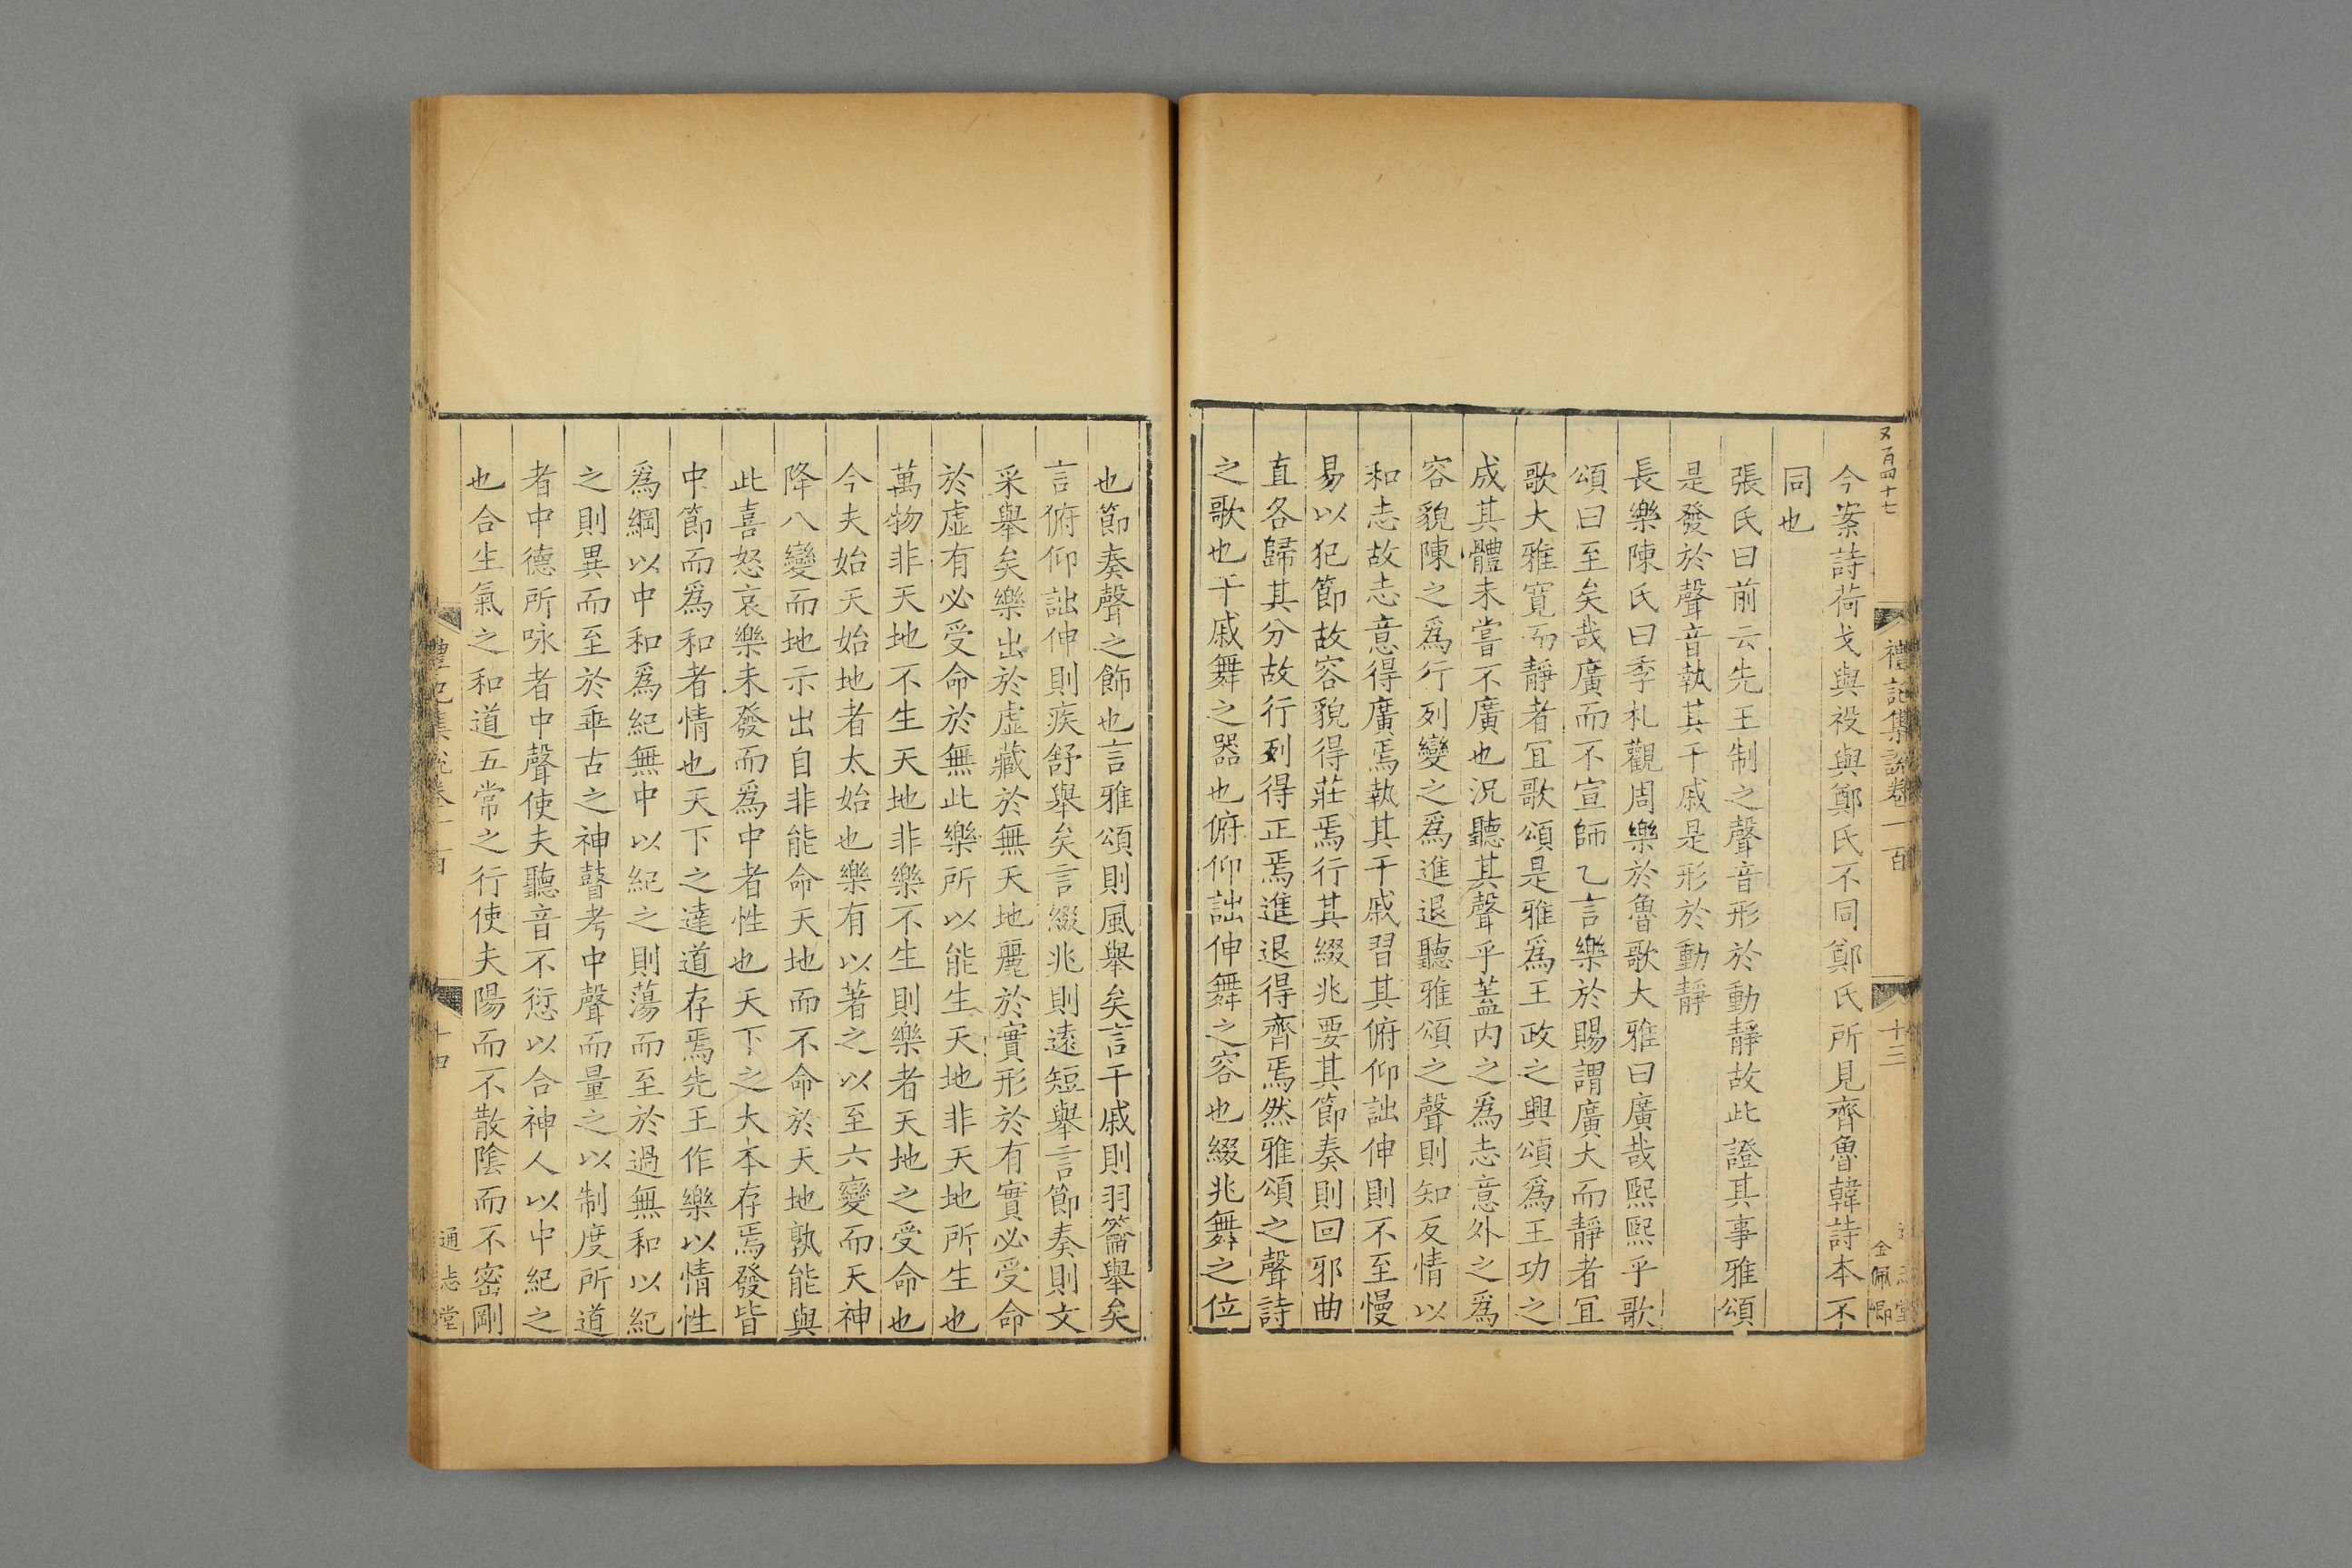 又百四十七
禮記集說卷一百
十三
金佩卿
今案詩荷戈與祋與鄭氏不同鄭氏所見齊魯韓詩本不
同也
張氏曰前云先王制之聲音形於動靜故此證其事雅頌
是發於聲音執其干戚是形於動靜
長樂陳氏曰季札觀周樂於魯歌大雅曰廣哉熙熙乎歌
頌曰至矣哉廣而不宣師乙言樂於賜謂廣大而靜者宜
歌大雅寬而靜者宜歌頌是雅為王政之興頌為王功之
成其體未嘗不廣也況聽其聲乎蓋內之為志意外之為
容貌陳之為行列變之為進退聽雅頌之聲則知反情以
和志故志意得廣焉執其干戚習其俯仰詘伸則不至慢
易以犯節故容貌得莊焉行其綴兆要其節奏則回邪曲
直各歸其分故行列得正焉進退得齊焉然雅頌之聲詩
之歌也干戚舞之器也俯仰詘伸舞之容也綴兆舞之位
也節奏聲之飾也言雅頌則風舉矣言干戚則羽籥舉矣
言俯仰詘伸則疾舒舉矣言綴兆則遠短舉言節奏則文
采舉矣樂出於虛藏於無天地麗於實形於有實必受命
於虛有必受命於無此樂所以能生天地非天地所生也
萬物非天地不生天地非樂不生則樂者天地之受命也
今夫始天始地者太始也樂有以著之以至六變而天神
降八變而地示出自非能命天地而不命於天地孰能與
此喜怒哀樂未發而為中者性也天下之大本存焉發皆
中節而為和者情也天下之達道存焉先王作樂以情性
為綱以中和為紀無中以紀之則蕩而至於過無和以紀
之則異而至於乖古之神瞽考中聲而量之以制度所道
者中德所咏者中聲使夫聽音不愆以合神人以中紀之
也合生氣之和道五常之行使夫陽而不散陰而不密剛
禮記集說卷一百
十四
通志堂